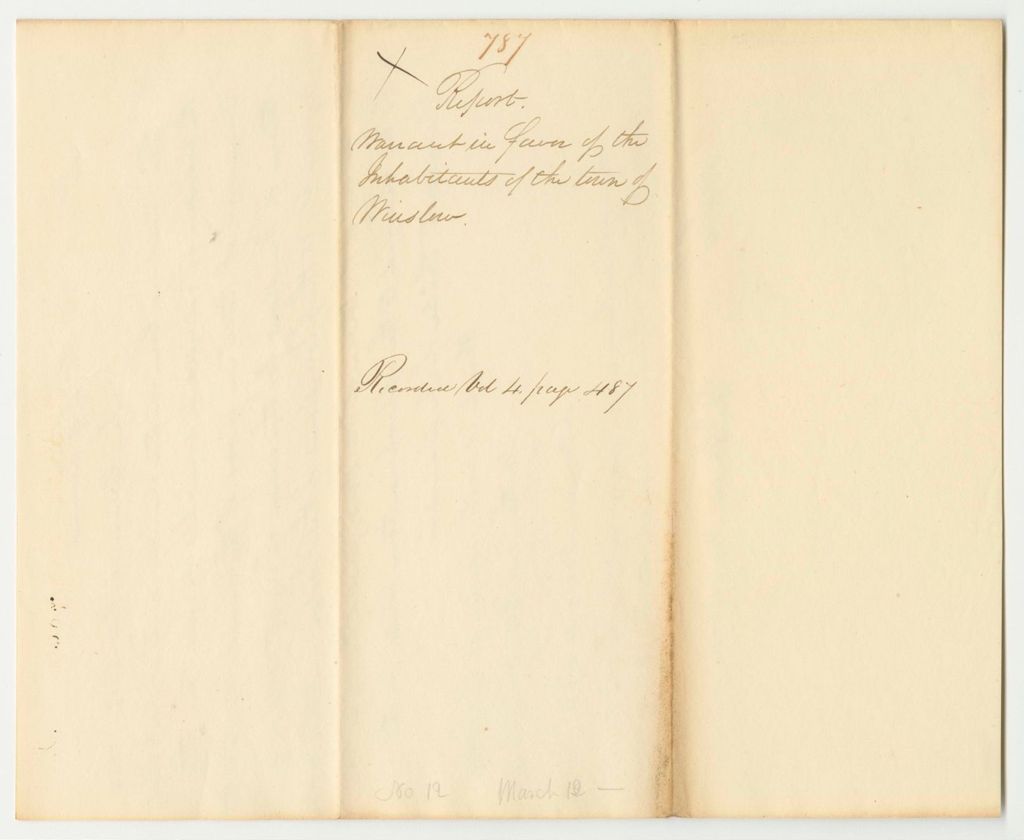 787
Report.
Warrant in favor of the
Inhabitants of the town of
Winslow.
Recorded Vol 4. page 487
No 12 March 12 —